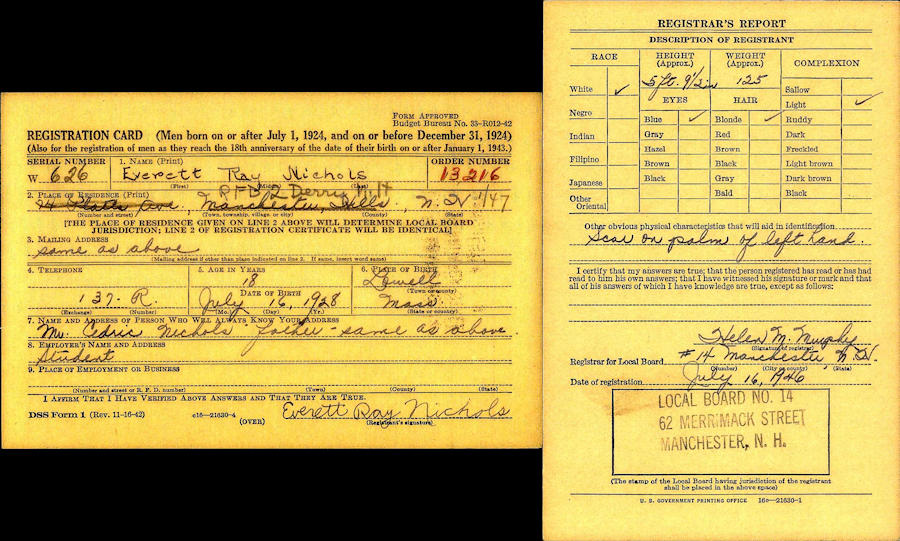 FORM APPROVED
Budget Bureau No. 33-R012-42
REGISTRATION CARD (Men born on or after July 1, 1924, and on or before December 31, 1924)
(Also for the registration of men as they reach the 18th anniversary of the date of their birth on or after January 1, 1943.)
SERIAL NUMBER 1. NAME (Print) ORDER NUMBER
W. 626 Everett Ray Nichols 13216
(First) (Middle) (Last)
RFD 2 Derry N.H. 1/47
2. PLACE OF RESIDENCE (Print)
Ave. Manchester, Hills N. H.
(Number and street) (Town, township, village, or city) (County) (State)
[THE PLACE OF RESIDENCE GIVEN ON LINE 2 ABOVE WILL DETERMINE LOCAL BOARD
JURISDICTION; LINE 2 OF REGISTRATION CERTIFICATE WILL BE IDENTICAL]
3. MAILING ADDRESS
same as above
(Mailing address if other than place indicated on line 2. If same, insert word same)
4. TELEPHONE 5. AGE IN YEARS 6. PLACE OF BIRTH
18 Lowell
DATE OF BIRTH (Town or county)
137-R. July 16, 1928 Mass.
(Exchange) (Number) (Mo.) (Day) (Yr.) (State or country)
7. NAME AND ADDRESS OF PERSON WHO WILL ALWAYS KNOW YOUR ADDRESS
Mr. Cedric Nichols father - same as above.
8. EMPLOYER'S NAME AND ADDRESS
Student
9. PLACE OF EMPLOYMENT OR BUSINESS
(Number and street or R. F. D. number) (Town) (County) (State)
I AFFIRM THAT I HAVE VERIFIED ABOVE ANSWERS AND THAT THEY ARE TRUE.
DSS Form 1 (Rev. 11-16-42) c16—21630-4 Everett Ray Nichols
(OVER) (Registrant's signature)
REGISTRAR'S REPORT
DESCRIPTION OF REGISTRANT
RACE HEIGHT (Approx.) WEIGHT (Approx.) COMPLEXION
White ✓ 5 ft. 9 1/2 in 125 Sallow
EYES HAIR Light ✓
Negro Blue ✓ Blonde ✓ Ruddy
Indian Gray Red Dark
Hazel Brown Freckled
Filipino Brown Black Light brown
Japanese Black Gray Dark brown
Other Oriental Bald Black
Other obvious physical characteristics that will aid in identification
Scar on palm of left hand.
I certify that my answers are true; that the person registered has read or has had
read to him his own answers; that I have witnessed his signature or mark and that
all of his answers of which I have knowledge are true, except as follows:
Helen M. Murphy
(Signature of registrar)
Registrar for Local Board #14 Manchester N.H.
(Number) (City or county) (State)
Date of registration July 16, 1946
LOCAL BOARD NO. 14
62 MERRIMACK STREET
MANCHESTER, N. H.
(The stamp of the Local Board having jurisdiction of the registrant
shall be placed in the above space)
U. S. GOVERNMENT PRINTING OFFICE 16c—21630-1